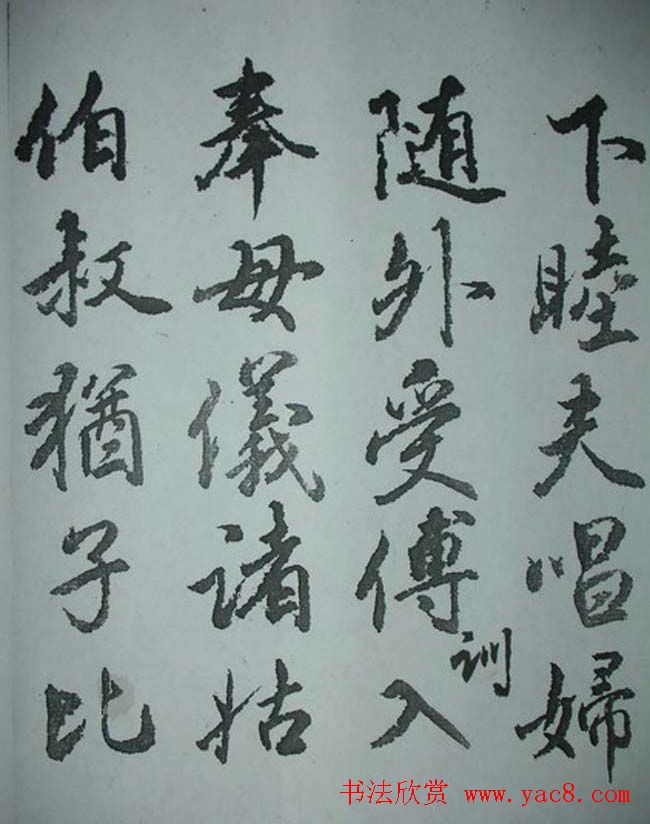 下睦夫唱婦
随外受傅訓入
奉母儀諸姑
伯叔猶子比
书法欣赏 www.yac8.com